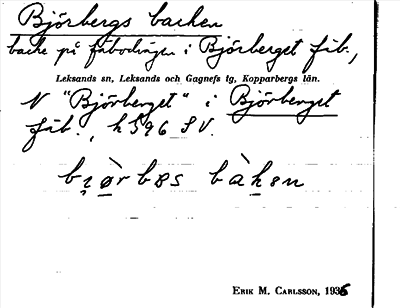 Björbergs backen
backe på fäbodvägen i Björberget fäb.,
Leksands sn, Leksands och Gagnefs tg, Kopparbergs län.
N "Björberget" i Björberget
fäb., h 596 SV.
Erik M. Carlsson, 1936